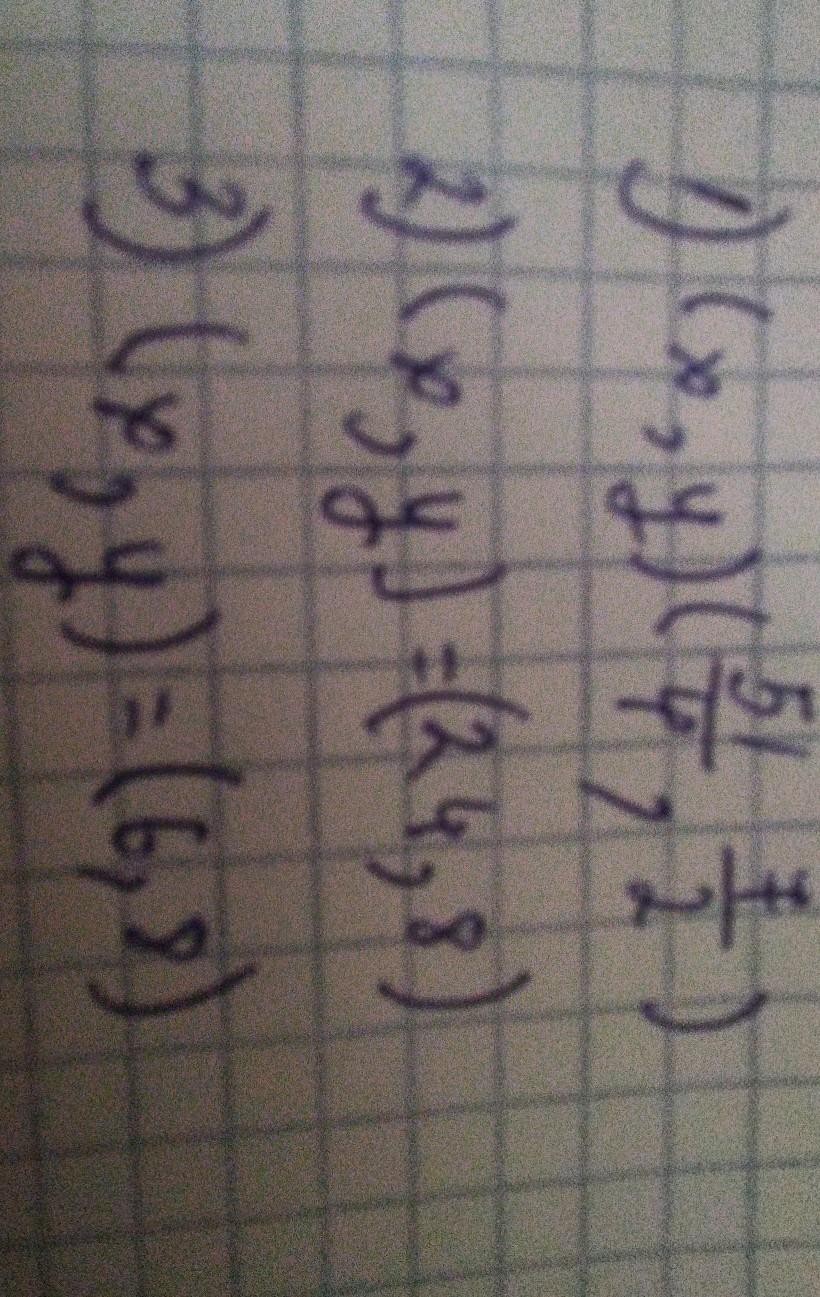 1) (x, y) (51/4, 7/2)
2) (x, y) = (24, 8)
3) (x, y) = (6, 8)